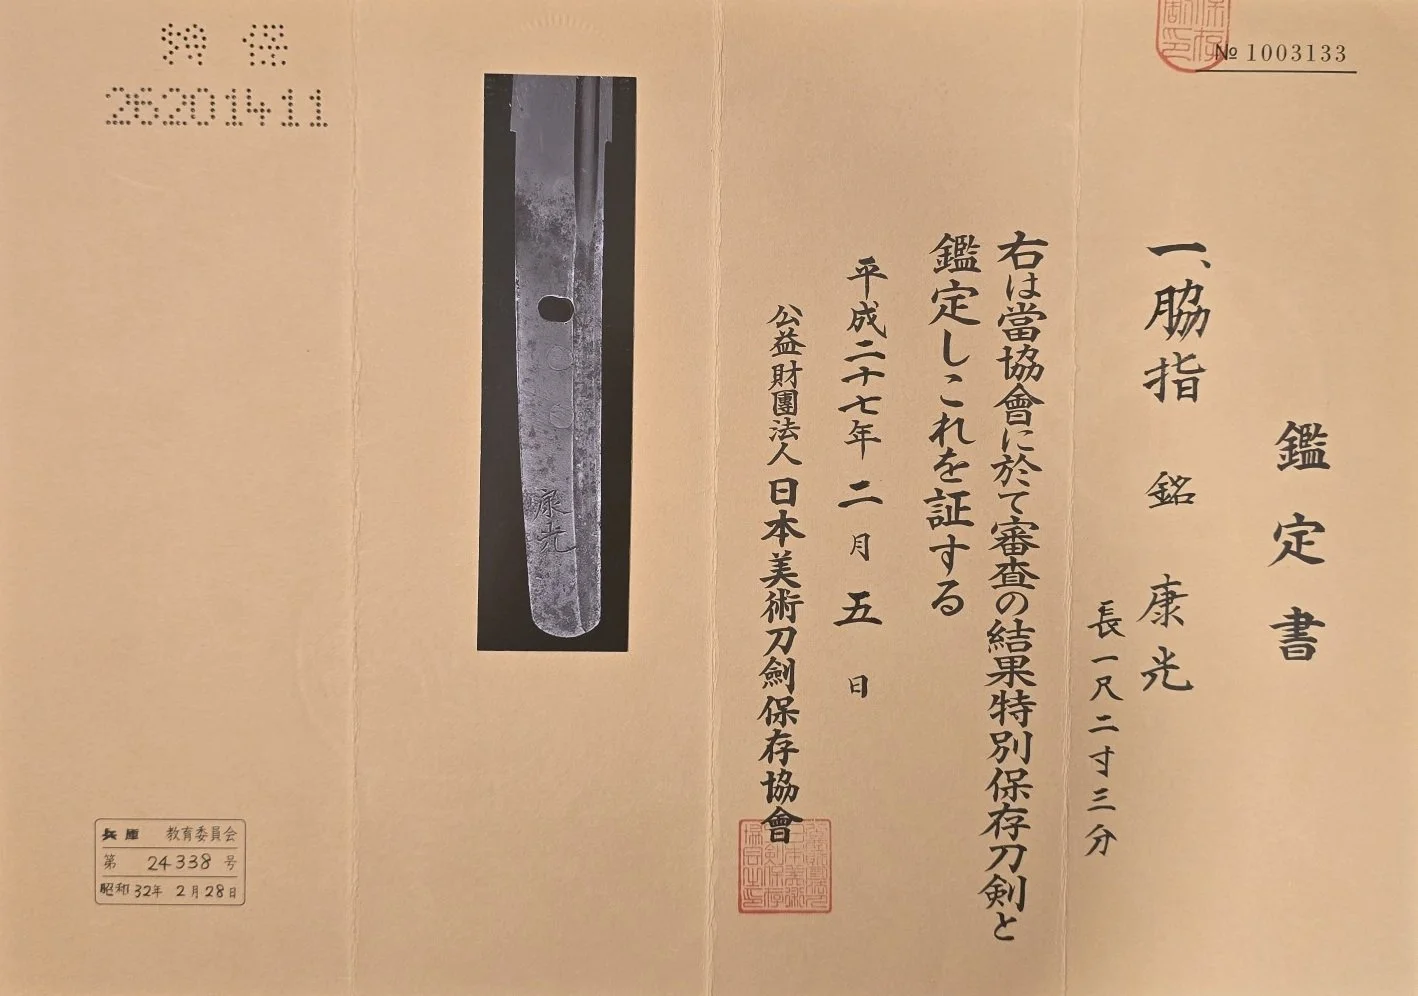 № 1003133
鑑定書
一、脇指 銘 康光
長一尺二寸三分
右は當協會に於て審査の結果特別保存刀剣と
鑑定しこれを証する
平成二十七年二月五日
公益財團法人日本美術刀劍保存協會
康光
特保
26201411
兵庫 教育委員会
第 24338 号
昭和32年 2月28日